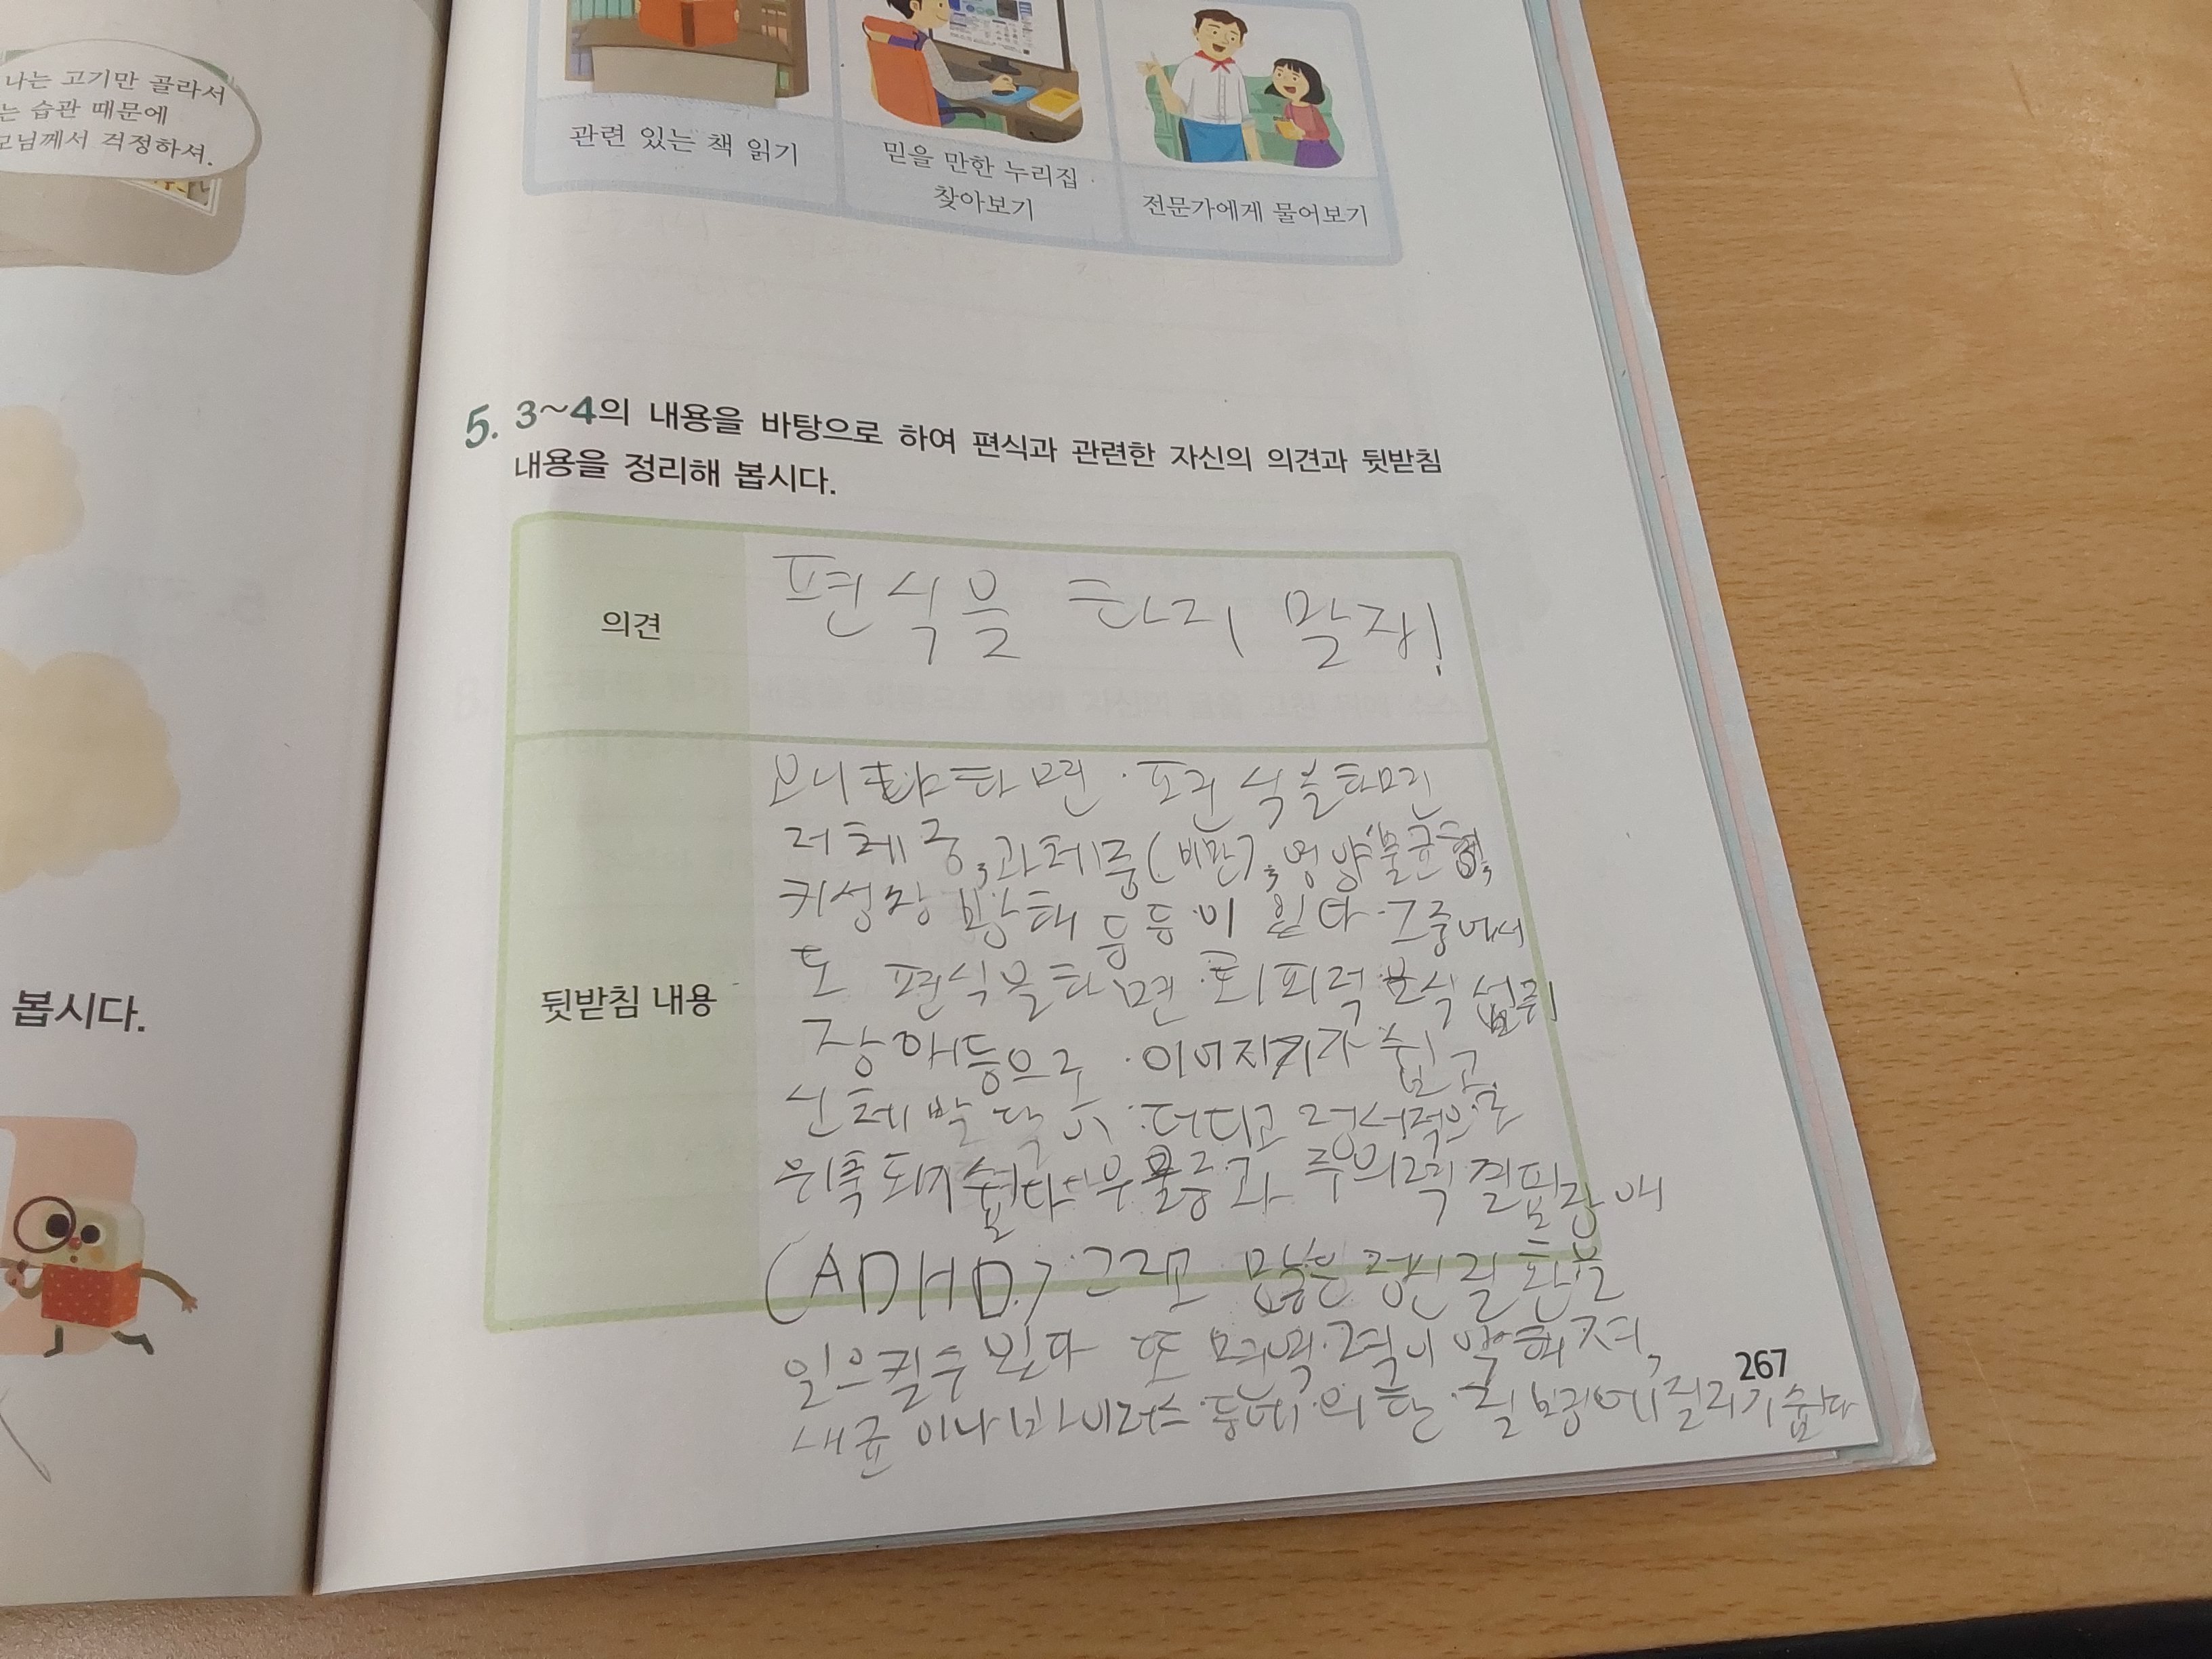 나는 고기만 골라서
는 습관 때문에
모님께서 걱정하셔.
관련 있는 책 읽기
믿을 만한 누리집
찾아보기
전문가에게 물어보기
5. 3~4의 내용을 바탕으로 하여 편식과 관련한 자신의 의견과 뒷받침
내용을 정리해 봅시다.
의견
편식을 하지 말자!
뒷받침 내용
왜냐하면 편식을하면
저체중, 과체중(비만), 영양불균형,
키성장 방해 등등이 있다. 그중에서
도 편식을하면 회피적 음식 섭취
장애등으로 이어지기가 쉽고
신체발달이 더디고 정서적으로
위축되기 쉽다 우울증과 주의력 결핍장애
(ADHD) 그리고 많은 정신질환을
일으킬수 있다 또 면역력이 약해져,
세균이나 바이러스 등에 의한 질병에 걸리기 쉽다
봅시다.
267